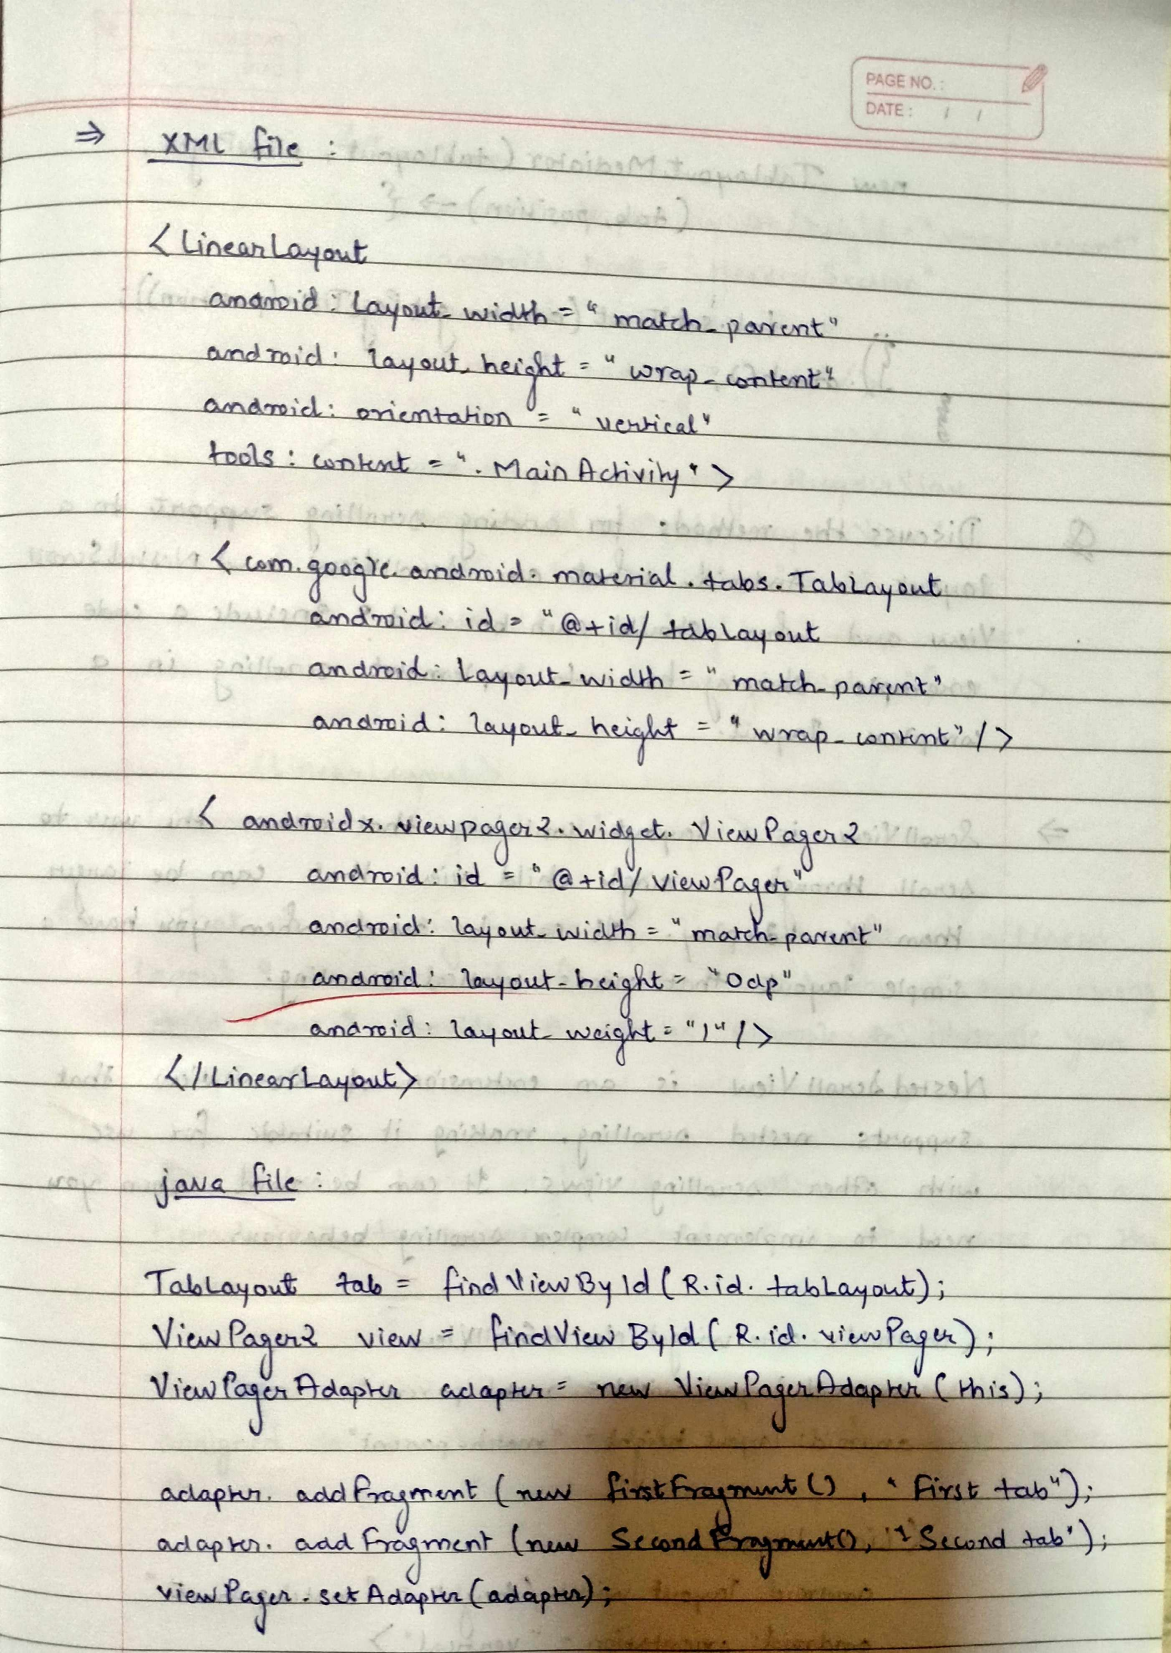 PAGE NO.:
DATE: / /
⇒ XML file :
<LinearLayout
android: Layout_width = "match_parent"
android: layout_height = "wrap_content"
android: orientation = "vertical"
tools: content = ".MainActivity">
<com.google.android.material.tabs.TabLayout
android: id = "@+id/tabLayout
android: Layout_width = "match_parent"
android: layout_height = "wrap_content"/>
<androidx.viewpager2.widget.ViewPager2
android: id = "@+id/viewPager"
android: layout_width = "match_parent"
android: layout_height = "0dp"
android: layout_weight = "1"/>
</LinearLayout>
java file :
TabLayout tab = findViewById(R.id.tabLayout);
ViewPager2 view = findViewById(R.id.viewPager);
ViewPagerAdapter adapter = new ViewPagerAdapter(this);
adapter.addFragment(new firstFragment(), "First tab");
adapter.addFragment(new SecondFragment(), "Second tab");
viewPager.setAdapter(adapter);